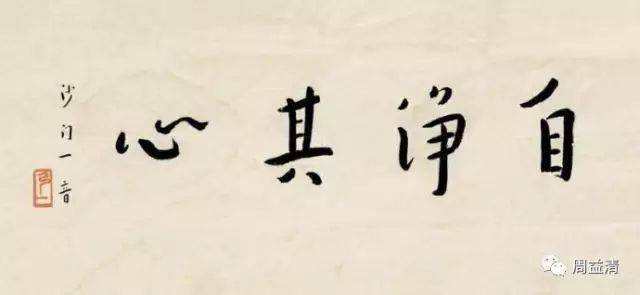 自淨其心
沙門一音
周益清